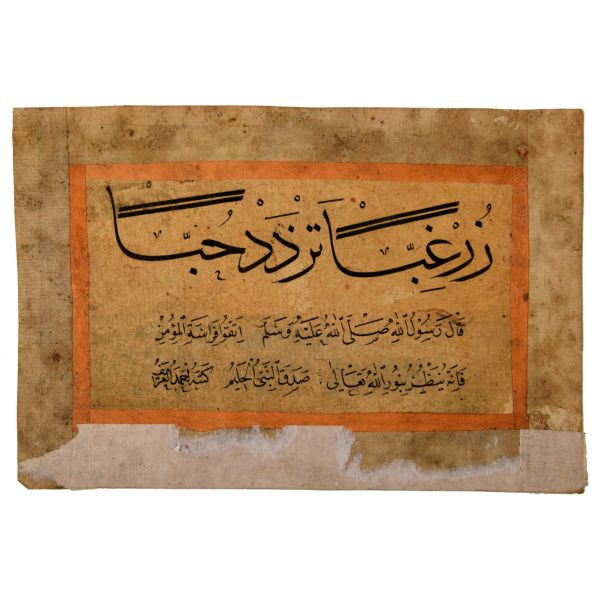 زُرْ غِبًّا تَزْدَدْ حُبًّا
قَالَ رَسُولُ اللّٰهِ صَلَّى اللّٰهُ عَلَيْهِ وَسَلَّمَ اتَّقُوا فِرَاسَةَ الْمُؤْمِنِ
فَإِنَّهُ يَنْظُرُ بِنُورِ اللّٰهِ تَعَالَى صَدَقَ النَّبِيُّ الْحَلِيمُ كَتَبَهُ